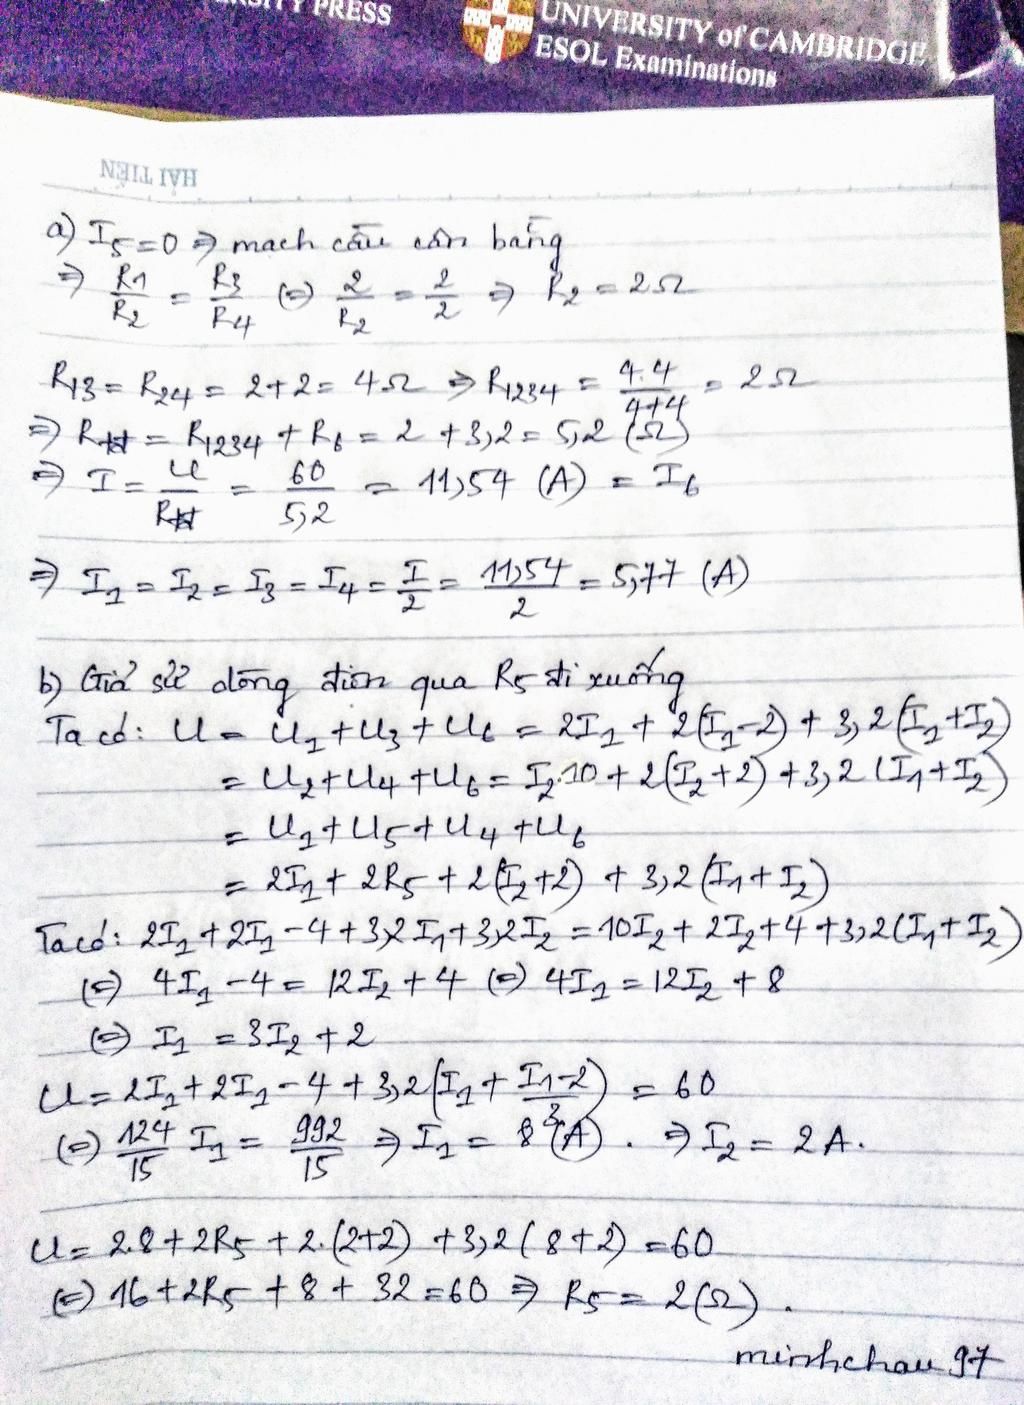 UNIVERSITY of CAMBRIDGE
ESOL Examinations
PRESS
HẢI TIẾN
a) I5 = 0 => mạch cầu cân bằng
=> R1/R2 = R3/R4 (=) 2/R2 = 2/2 => R2 = 2Ω
R13 = R24 = 2+2 = 4Ω => R1234 = 4.4/4+4 = 2Ω
=> Rtđ = R1234 + R6 = 2 + 3,2 = 5,2 (Ω)
=> I = U/Rtđ = 60/5,2 = 11,54 (A) = I6
=> I1 = I2 = I3 = I4 = I/2 = 11,54/2 = 5,77 (A)
b) Giả sử dòng điện qua R5 đi xuống
Ta có: U = U1 + U3 + U6 = 2I1 + 2(I1-2) + 3,2(I1+I2)
= U2 + U4 + U6 = I2.10 + 2(I2+2) + 3,2(I1+I2)
= U1 + U5 + U4 + U6
= 2I1 + 2R5 + 2(I2+2) + 3,2(I1+I2)
Ta có: 2I1 + 2I1 - 4 + 3,2I1 + 3,2I2 = 10I2 + 2I2 + 4 + 3,2(I1+I2)
(=) 4I1 - 4 = 12I2 + 4 (=) 4I1 = 12I2 + 8
(=) I1 = 3I2 + 2
U = 2I1 + 2I1 - 4 + 3,2(I1 + I1-2/3) = 60
(=) 124/15 I1 = 992/15 => I1 = 8 (A). => I2 = 2A.
U = 2.8 + 2R5 + 2.(2+2) + 3,2(8+2) = 60
(=) 16 + 2R5 + 8 + 32 = 60 => R5 = 2(Ω).
minhchau 97